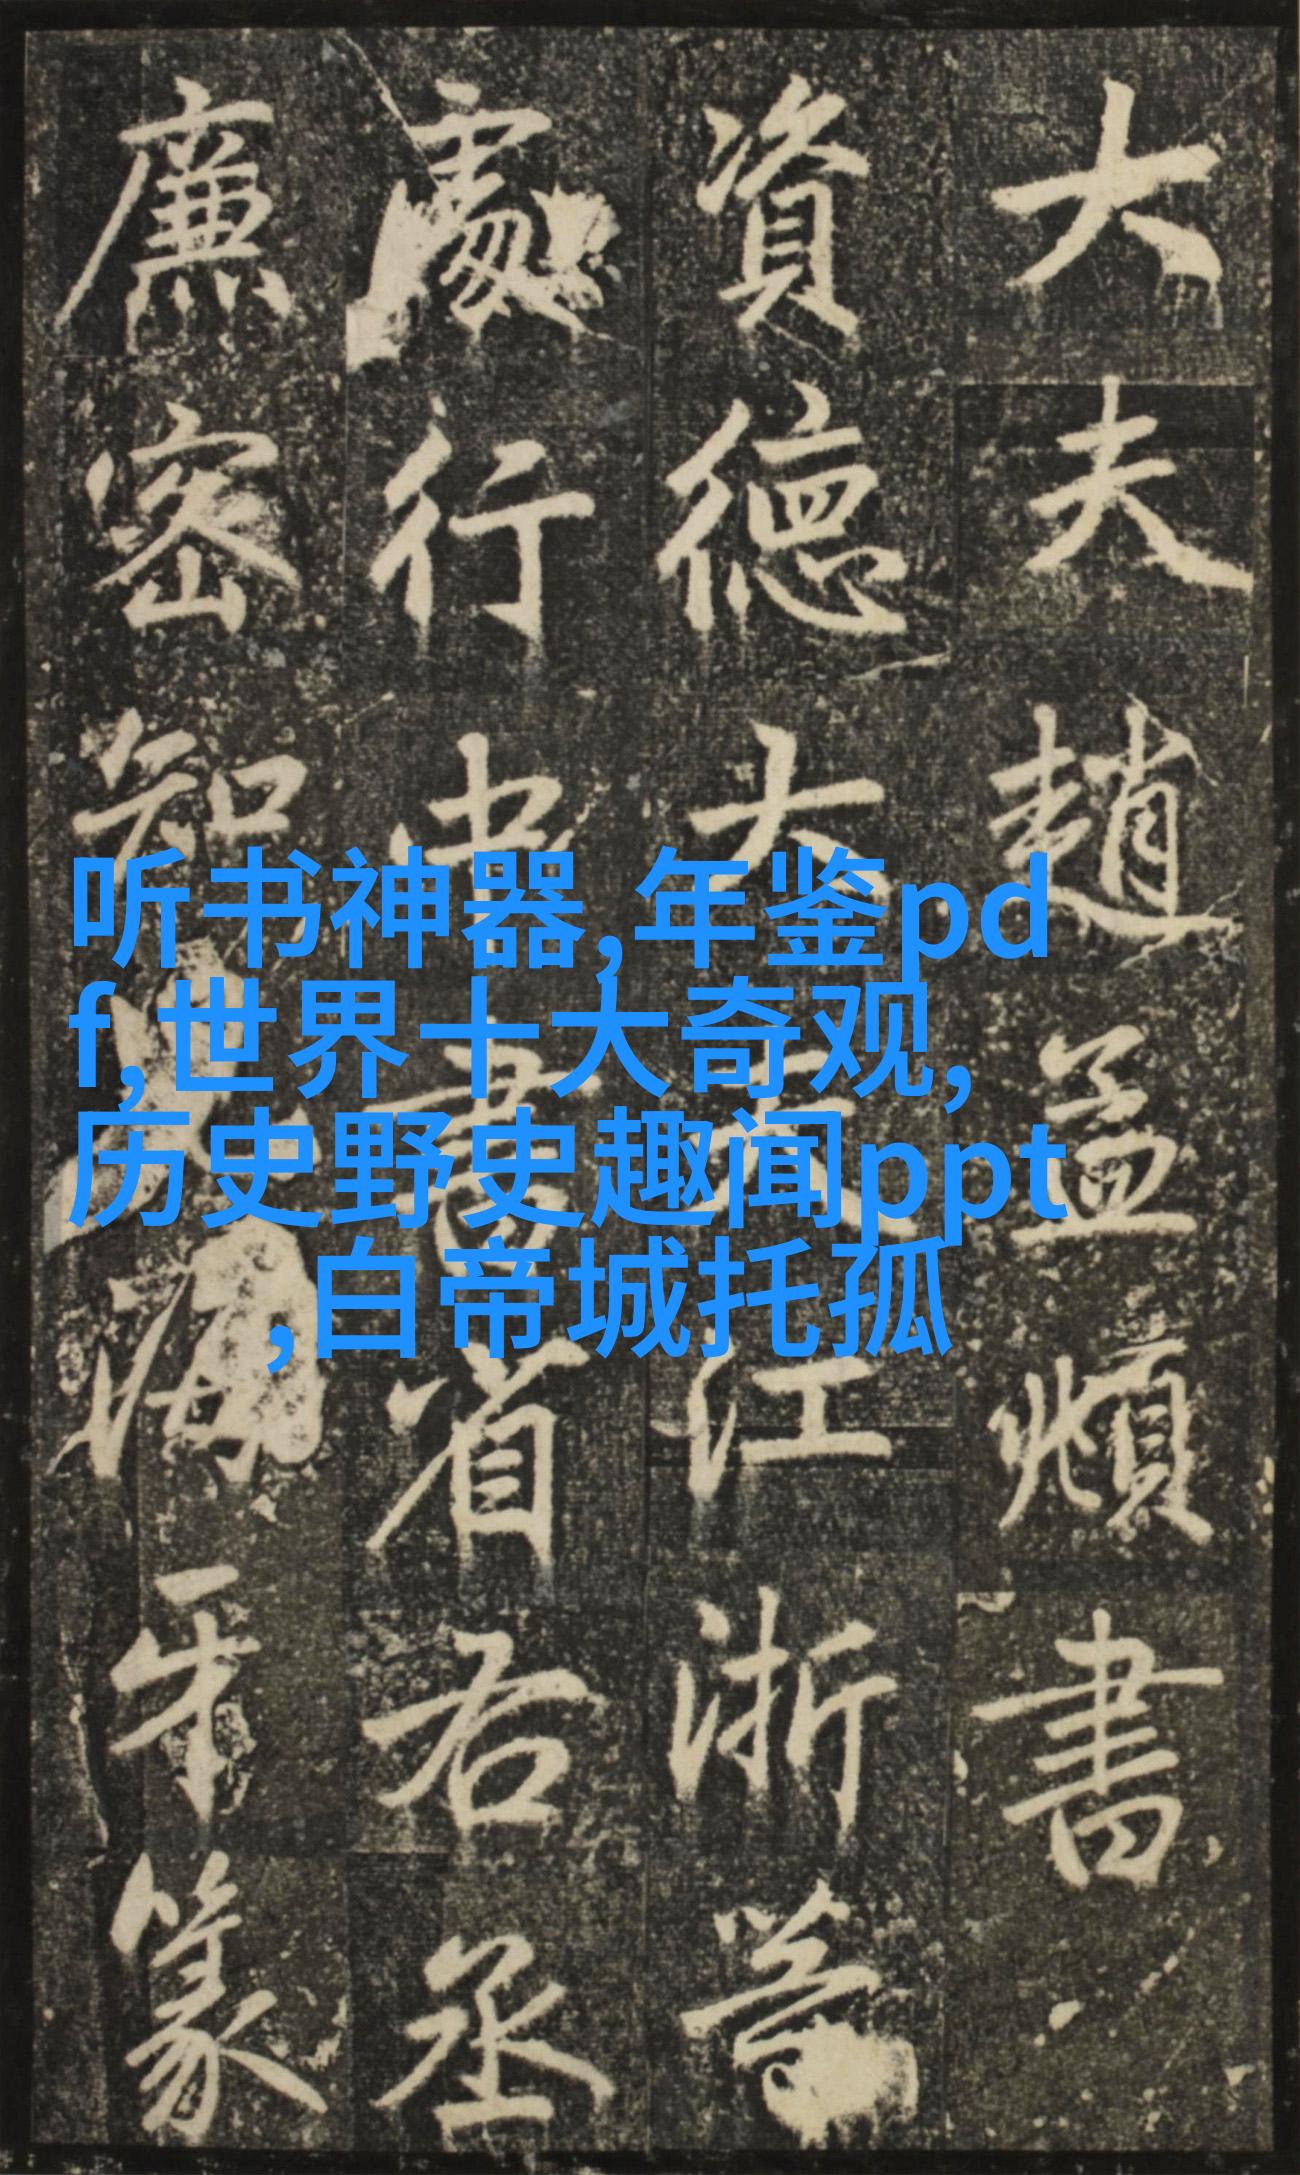 大夫趙孟頫書
資德大夫江浙等
處行中書省右丞
廉密知海牙篆
听书神器,年鉴pd
f,世界十大奇观,
历史野史趣闻ppt
,白帝城托孤